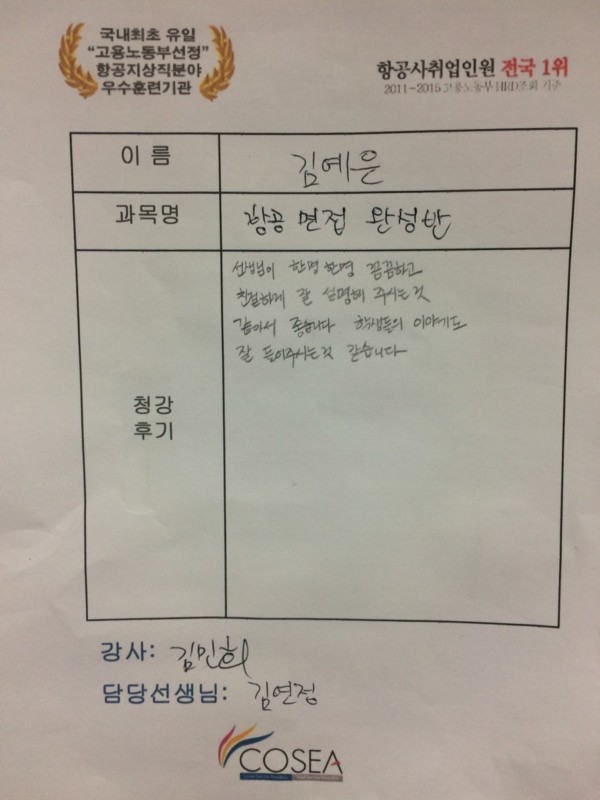 국내최초 유일
“고용노동부선정”
항공지상직분야
우수훈련기관
항공사취업인원 전국 1위
2011~2015 고용노동부 HRD조회 기준
이 름
김예은
과목명
항공 면접 완성반
청강
후기
선생님이 한명 한명 꼼꼼하고
친절하게 잘 설명해 주시는것
같아서 좋습니다 학생들의 이야기도
잘 들어주시는것 같습니다
강사: 김민희
담당선생님: 김연정
COSEA